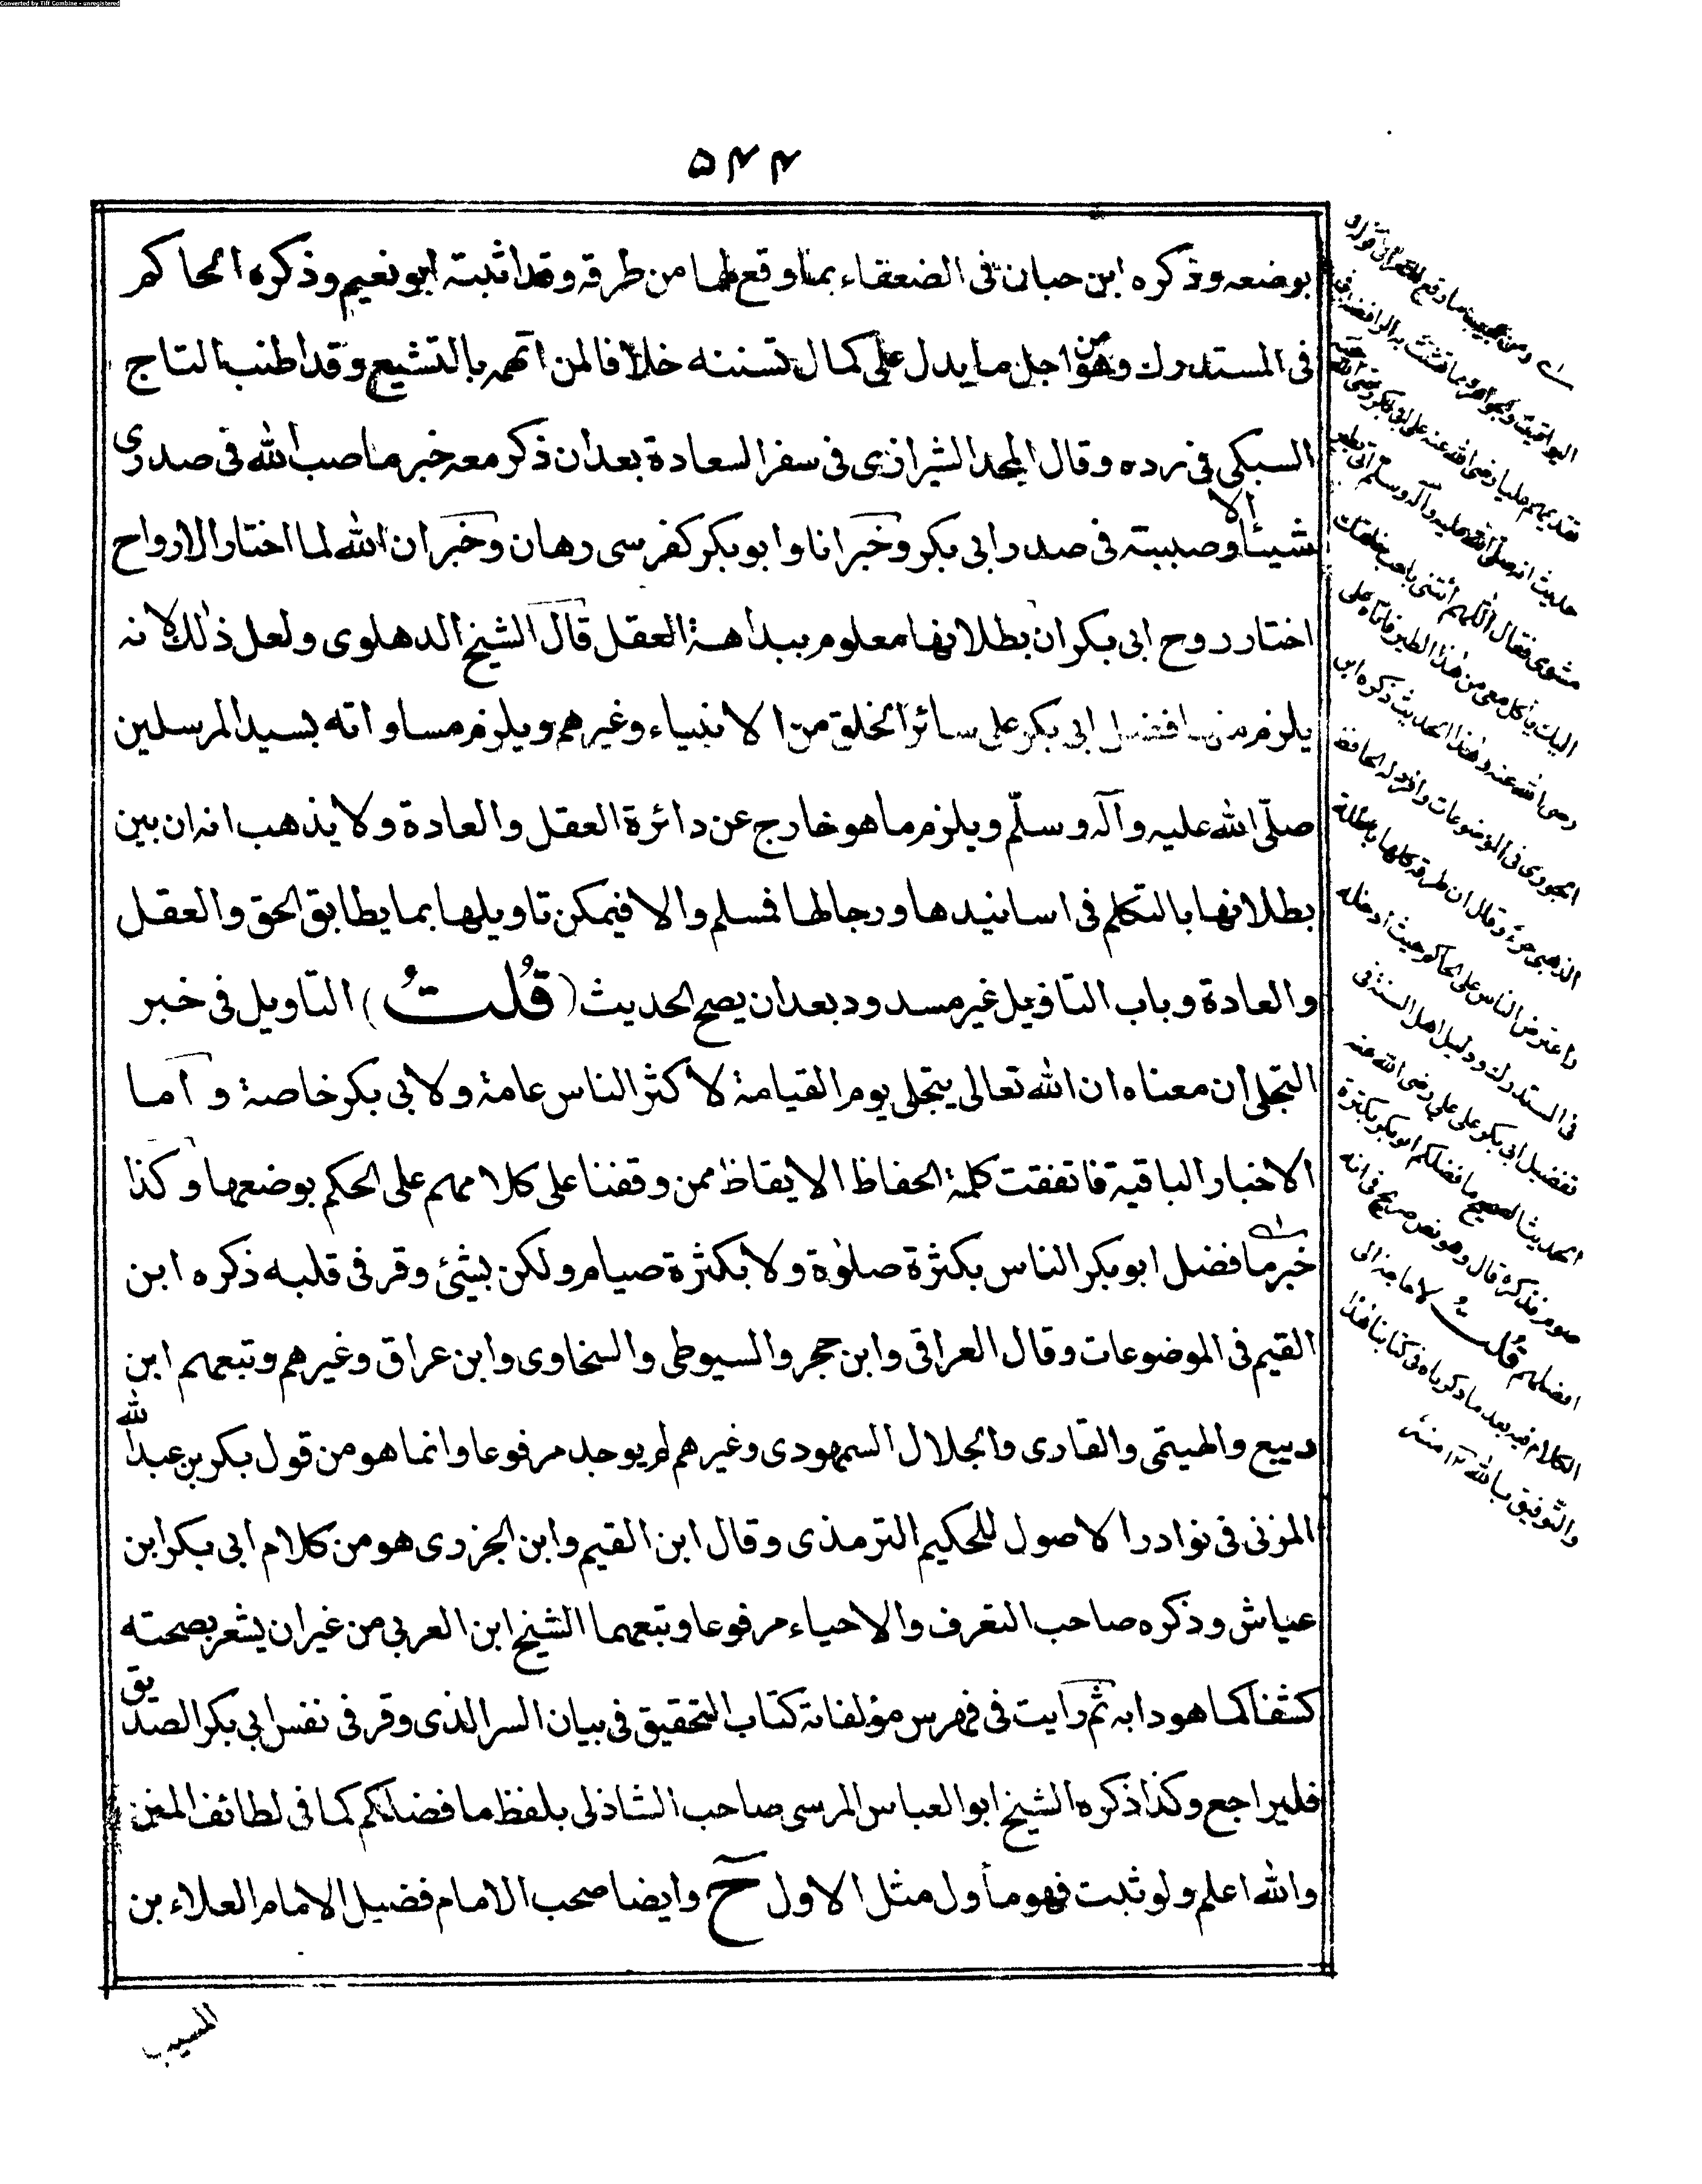 Converted by Tiff Combine - unregistered
۵۴۴
بوضعه وذكره ابن حبان فى الضعفاء بما وقع لهما من طرقه وقد اثبته ابو نعيم وذكره الحاكم
فى المستدرك وهو من اجل ما يدل على كمال تسننه خلافا لمن اتهمه بالتشيع وقد اطنب التاج
السبكى فى رده وقال المجد الشيرازى فى سفر السعادة بعد ان ذكر معه خبر ما صب الله فى صدرى
شيئا الا وصببته فى صدر ابى بكر وخبر انا وابو بكر كفرسى رهان وخبر ان الله لما اختار الارواح
اختار روح ابى بكر ان بطلانها معلوم ببداهة العقل قال الشيخ الدهلوى ولعل ذلك لانه
يلزم منها افضل ابى بكر على سائر الخلق من الانبياء وغيرهم ويلزم مساواته بسيد المرسلين
صلّى الله عليه وآله وسلّم ويلزم ما هو خارج عن دائرة العقل والعادة ولا يذهب انه ان بين
بطلانها بالتكلم فى اسانيدها ورجالها فمسلم والا فيمكن تاويلها بما يطابق الحق والعقل
والعادة وباب التاويل غير مسدود بعد ان يصح الحديث (قُلتُ) التاويل فى خبر
التجلى ان معناه ان الله تعالى يتجلى يوم القيامة لاكثر الناس عامة ولابى بكر خاصة واما
الاخبار الباقية فاتفقت كلمة الحفاظ الايقاظ ممن وقفنا على كلامهم على الحكم بوضعها وكذا
خبر ما فضل ابو بكر الناس بكثرة صلوة ولا بكثرة صيام ولكن بشئ وقر فى قلبه ذكره ابن
القيم فى الموضوعات وقال العراقى وابن حجر والسيوطى والسخاوى وابن عراق وغيرهم وتبعهم ابن
دبيع والهيتمى والقارى والجلال السمهودى وغيرهم لم يوجد مرفوعا وانما هو من قول بكر بن عبد الله
المزنى فى نوادر الاصول للحكيم الترمذى وقال ابن القيم وابن الجزرى هو من كلام ابى بكر ابن
عياش وذكره صاحب التعرف والاحياء مرفوعا وتبعهما الشيخ ابن العربى من غير ان يشعر بصحته
كشفا كما هو دابه ثم رايت فى فهرس مؤلفاته كتاب التحقيق فى بيان السر الذى وقر فى نفس ابى بكر الصديق
فليراجع وكذا ذكره الشيخ ابو العباس المرسى صاحب الشاذلى بلفظ ما فضلكم كما فى لطائف المنن
والله اعلم ولو ثبت فهو مأول مثل الاول ح وايضا صحب الامام فضيل الامام العلاء بن
المسيب
ومن العجيب ما وقع للشعرانى
اليواقيت والجواهر ومما تشبث به الرافضة فى
تقديمهم عليا رضى الله عنه على ابى بكر رضى الله عنه
حديث انه صلّى الله عليه وآله وسلم اتى بطير
مشوى فقال اللهم ائتنى باحب خلقك
اليك يأكل معى من هذا الطير فاتاه على
رضى الله عنه وهذا الحديث ذكره ابن
الجوزى فى الموضوعات وافرد له الحافظ
الذهبى جزء وقال ان طرقه كلها باطلة
واعترض الناس على الحاكم حيث ادخله
فى المستدرك ودليل اهل السنة فى
تفضيل ابى بكر على على رضى الله عنه
الحديث الصحيح ما فضلكم ابو بكر بكثرة
صوم فذكره قال وهو نص صريح فى انه
افضلهم قُلتُ لا حاجة الى
الكلام فيه بعد ما ذكرناه فى كتابنا هذا
والتوفيق بالله ۱۲ منه